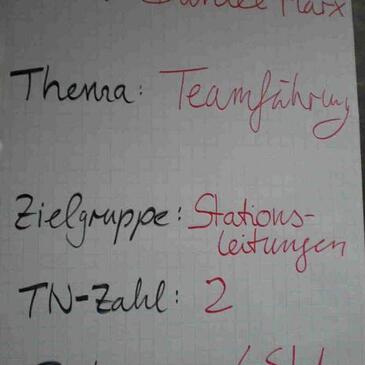 Marx
Thema: Teamführung
Zielgruppe: Stations-
leitungen
TN-Zahl: 2